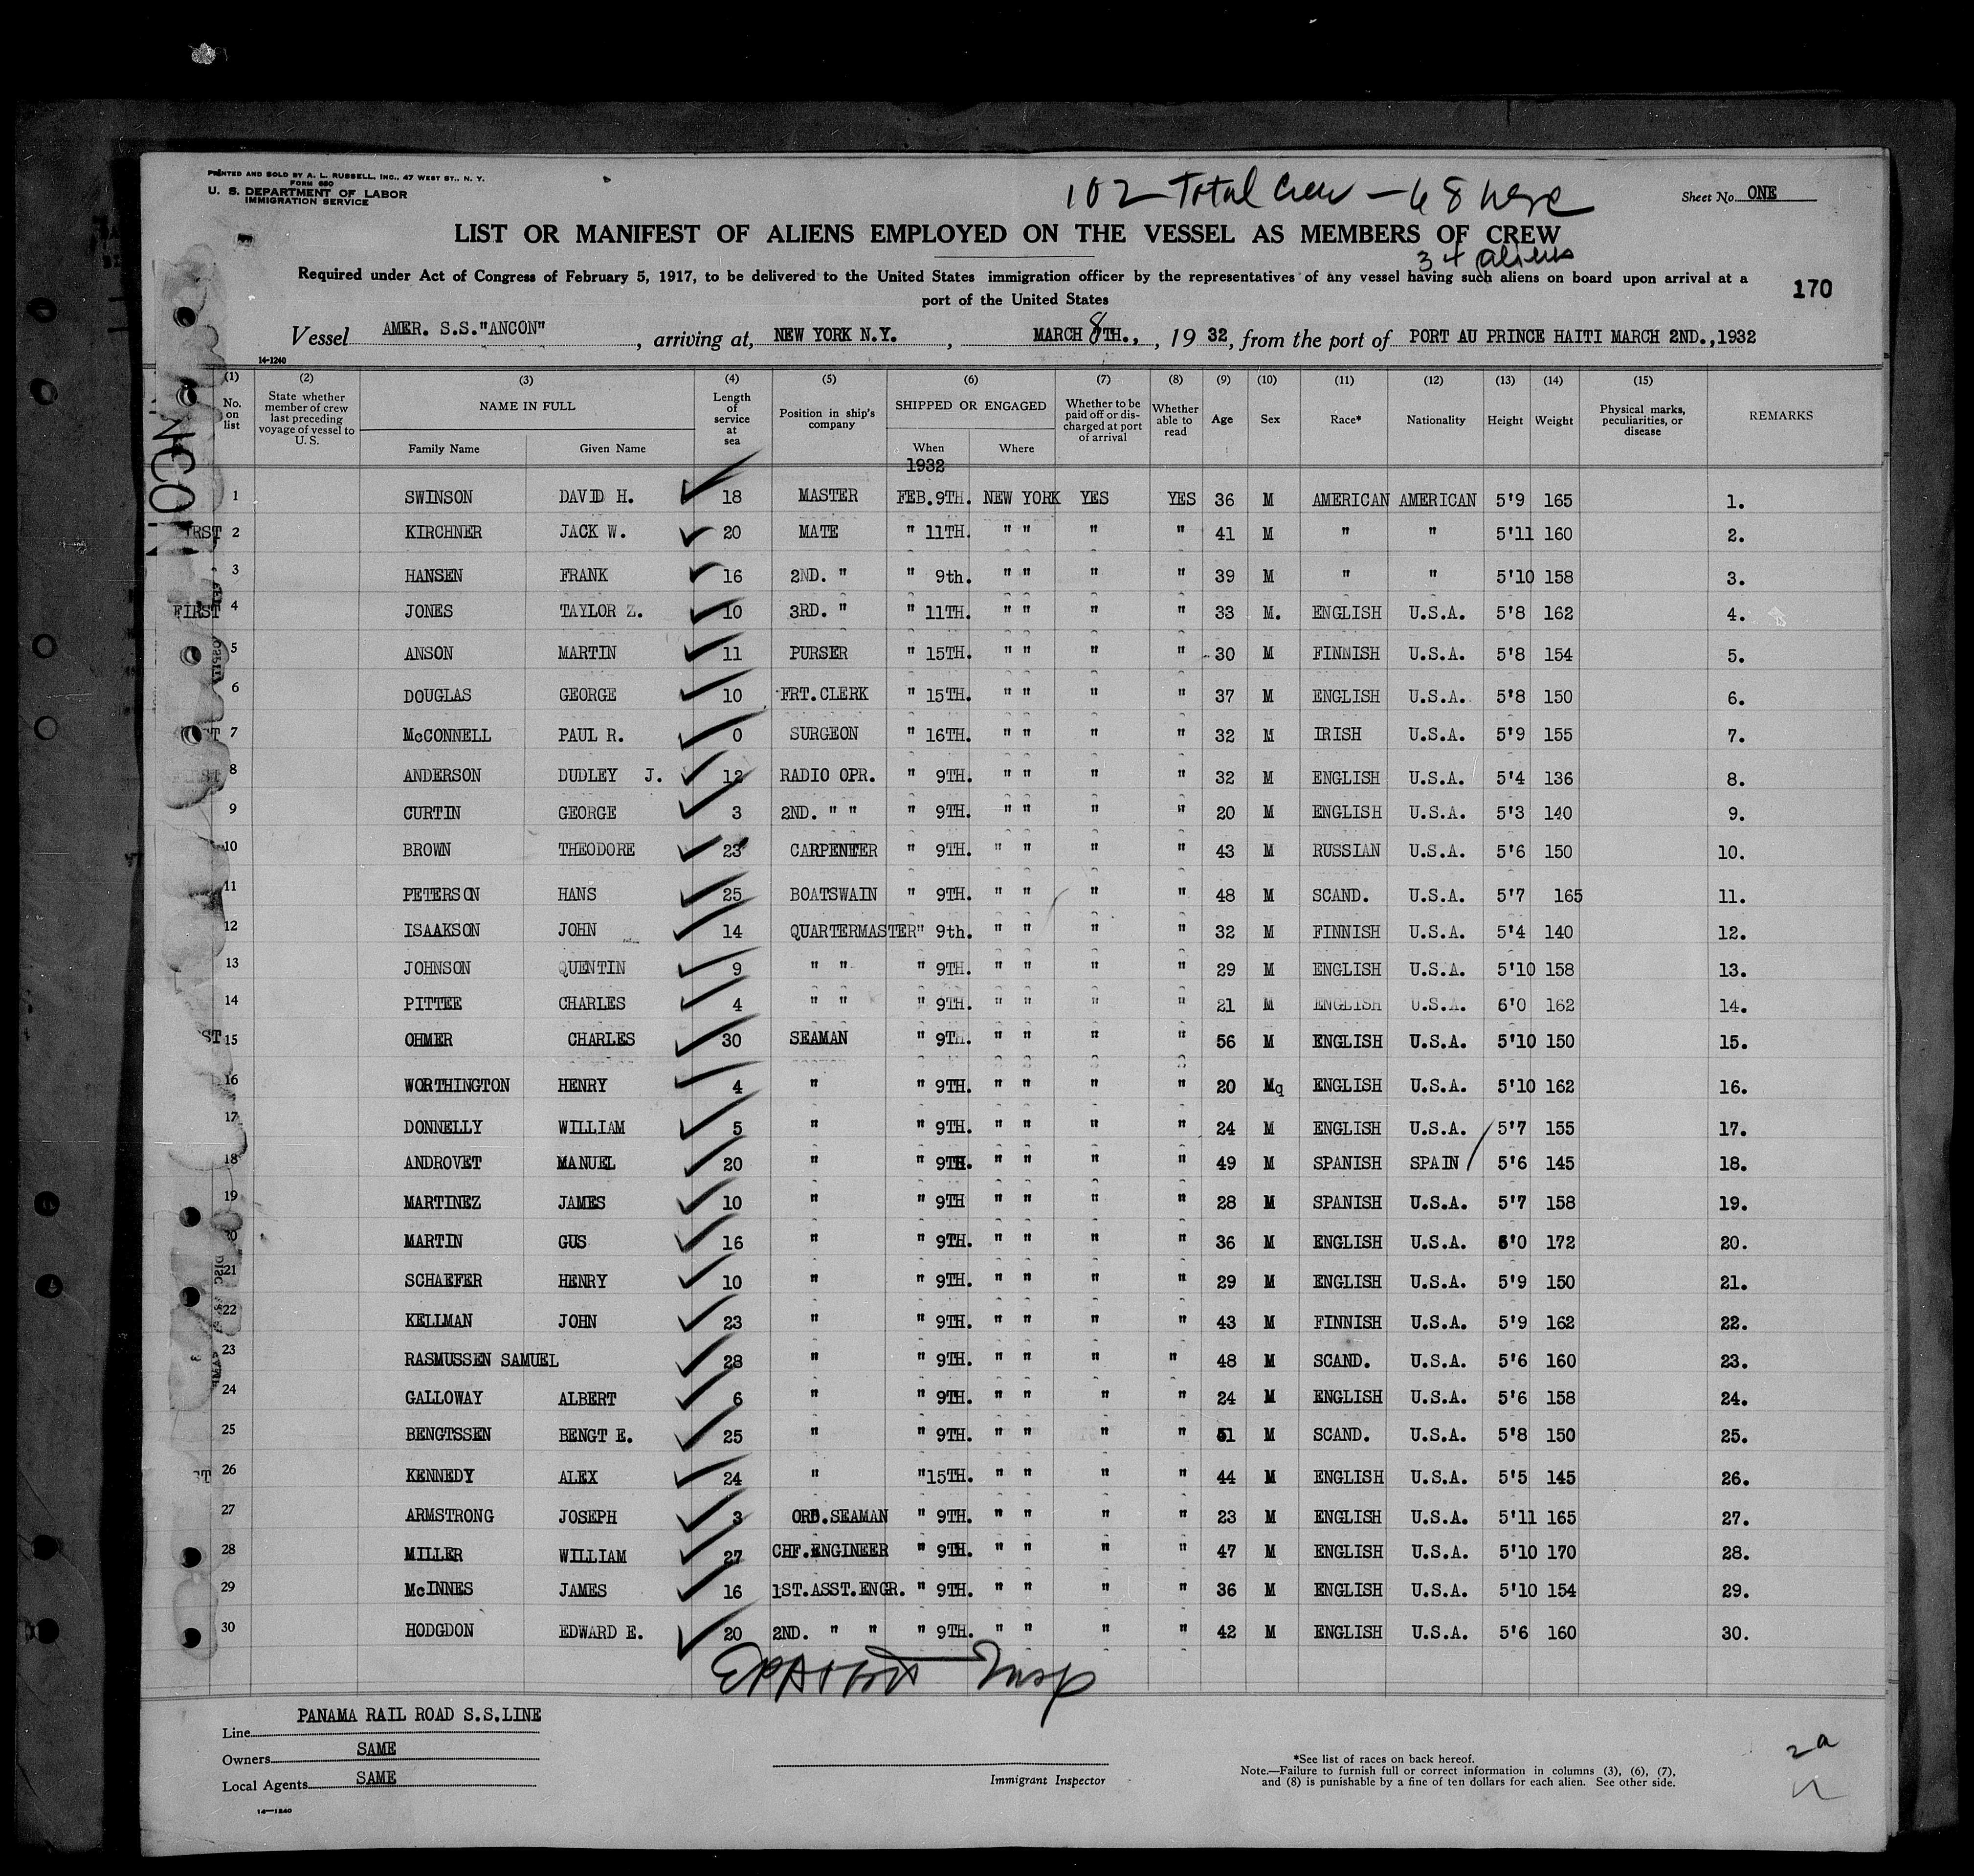 PRINTED AND SOLD BY A. L. RUSSELL, INC., 47 WEST ST., N. Y.
FORM 680
U. S. DEPARTMENT OF LABOR
IMMIGRATION SERVICE
102 Total Crew - 68 here
Sheet No. ONE
LIST OR MANIFEST OF ALIENS EMPLOYED ON THE VESSEL AS MEMBERS OF CREW
34 aliens
Required under Act of Congress of February 5, 1917, to be delivered to the United States immigration officer by the representatives of any vessel having such aliens on board upon arrival at a
port of the United States
170
Vessel AMER. S.S."ANCON", arriving at, NEW YORK N.Y., MARCH 8TH., , 1932, from the port of PORT AU PRINCE HAITI MARCH 2ND.,1932
14-1240
(1) (2) (3) (4) (5) (6) (7) (8) (9) (10) (11) (12) (13) (14) (15)
No. on list State whether member of crew last preceding voyage of vessel to U. S. NAME IN FULL Length of service at sea Position in ship's company SHIPPED OR ENGAGED Whether to be paid off or discharged at port of arrival Whether able to read Age Sex Race* Nationality Height Weight Physical marks, peculiarities, or disease REMARKS
Family Name Given Name When Where
1932
1 SWINSON DAVID H. 18 MASTER FEB.9TH. NEW YORK YES YES 36 M AMERICAN AMERICAN 5'9 165 1.
2 KIRCHNER JACK W. 20 MATE " 11TH. " " " " 41 M " " 5'11 160 2.
3 HANSEN FRANK 16 2ND. " " 9th. " " " " 39 M " " 5'10 158 3.
FIRST 4 JONES TAYLOR Z. 10 3RD. " " 11TH. " " " " 33 M. ENGLISH U.S.A. 5'8 162 4.
5 ANSON MARTIN 11 PURSER " 15TH. " " " " 30 M FINNISH U.S.A. 5'8 154 5.
6 DOUGLAS GEORGE 10 FRT.CLERK " 15TH. " " " " 37 M ENGLISH U.S.A. 5'8 150 6.
7 McCONNELL PAUL R. 0 SURGEON " 16TH. " " " " 32 M IRISH U.S.A. 5'9 155 7.
8 ANDERSON DUDLEY J. 12 RADIO OPR. " 9TH. " " " " 32 M ENGLISH U.S.A. 5'4 136 8.
9 CURTIN GEORGE 3 2ND. " " " 9TH. " " " " 20 M ENGLISH U.S.A. 5'3 140 9.
10 BROWN THEODORE 23 CARPENTER " 9TH. " " " " 43 M RUSSIAN U.S.A. 5'6 150 10.
11 PETERSON HANS 25 BOATSWAIN " 9TH. " " " " 48 M SCAND. U.S.A. 5'7 165 11.
12 ISAAKSON JOHN 14 QUARTERMASTER " 9th. " " " " 32 M FINNISH U.S.A. 5'4 140 12.
13 JOHNSON QUENTIN 9 " " " 9TH. " " " " 29 M ENGLISH U.S.A. 5'10 158 13.
14 PITTEE CHARLES 4 " " " 9TH. " " " " 21 M ENGLISH U.S.A. 6'0 162 14.
15 OHMER CHARLES 30 SEAMAN " 9TH. " " " " 56 M ENGLISH U.S.A. 5'10 150 15.
16 WORTHINGTON HENRY 4 " " 9TH. " " " " 20 Mq ENGLISH U.S.A. 5'10 162 16.
17 DONNELLY WILLIAM 5 " " 9TH. " " " " 24 M ENGLISH U.S.A. 5'7 155 17.
18 ANDROVET MANUEL 20 " " 9TH. " " " " 49 M SPANISH SPAIN 5'6 145 18.
19 MARTINEZ JAMES 10 " " 9TH " " " " 28 M SPANISH U.S.A. 5'7 158 19.
20 MARTIN GUS 16 " " 9TH. " " " " 36 M ENGLISH U.S.A. 6'0 172 20.
21 SCHAEFER HENRY 10 " " 9TH. " " " " 29 M ENGLISH U.S.A. 5'9 150 21.
22 KELLMAN JOHN 23 " " 9TH. " " " " 43 M FINNISH U.S.A. 5'9 162 22.
23 RASMUSSEN SAMUEL 28 " " 9TH. " " " " 48 M SCAND. U.S.A. 5'6 160 23.
24 GALLOWAY ALBERT 6 " " 9TH. " " " " 24 M ENGLISH U.S.A. 5'6 158 24.
25 BENGTSSEN BENGT E. 25 " " 9TH. " " " " 51 M SCAND. U.S.A. 5'8 150 25.
26 KENNEDY ALEX 24 " "15TH. " " " " 44 M ENGLISH U.S.A. 5'5 145 26.
27 ARMSTRONG JOSEPH 3 ORD.SEAMAN " 9TH. " " " " 23 M ENGLISH U.S.A. 5'11 165 27.
28 MILLER WILLIAM 27 CHF.ENGINEER " 9TH. " " " " 47 M ENGLISH U.S.A. 5'10 170 28.
29 McINNES JAMES 16 1ST.ASST.ENGR. " 9TH. " " " " 36 M ENGLISH U.S.A. 5'10 154 29.
30 HODGDON EDWARD E. 20 2ND. " " " 9TH. " " " " 42 M ENGLISH U.S.A. 5'6 160 30.
Insp
Line PANAMA RAIL ROAD S.S.LINE
Owners SAME
Local Agents SAME
14-1240
Immigrant Inspector
*See list of races on back hereof.
Note.—Failure to furnish full or correct information in columns (3), (6), (7),
and (8) is punishable by a fine of ten dollars for each alien. See other side.
2a